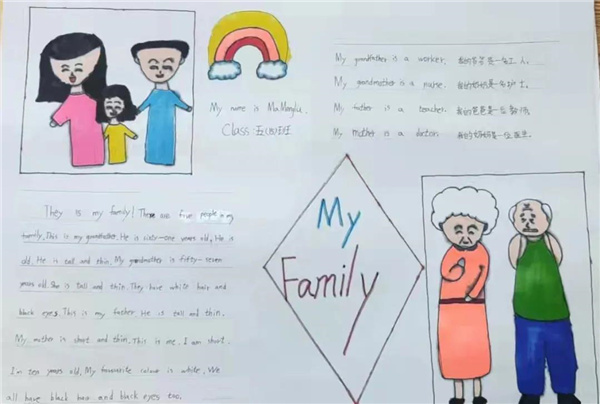 My name is Ma Manglu.
Class:五(四)班
My grandfather is a worker. 我的爷爷是一名工人.
My grandmother is a nurse. 我的奶奶是一名护士.
My father is a teacher. 我的爸爸是一名教师.
My mother is a dortor. 我的妈妈是一名医生.
They is my family! There are five people in my
family. This is my grandfather. He is sixty-one years old. He is
old. He is tall and thin. My grandmother is fifty-seven
years old. She is tall and thin. They have white hair and
black eyes. This is my father. He is tall and thin.
My mother is short and thin. This is me. I am short.
I'm ten years old. My favourite colour is white. We
all have black hair and black eyes too.
My
Family